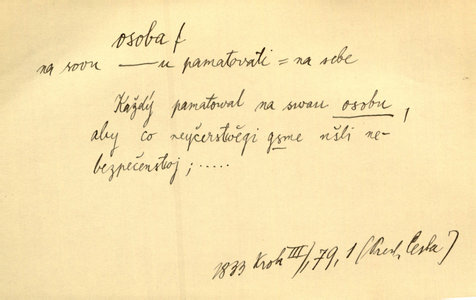 osoba f
na svou —u pamatovati = na sebe
Každý pamatoval na swau osobu,
aby co neyčerstwěgi gsme ušli ne-
bezpečenstwj; .....
1833 Krok III/1, 79, 1 (Presl, Čečka)